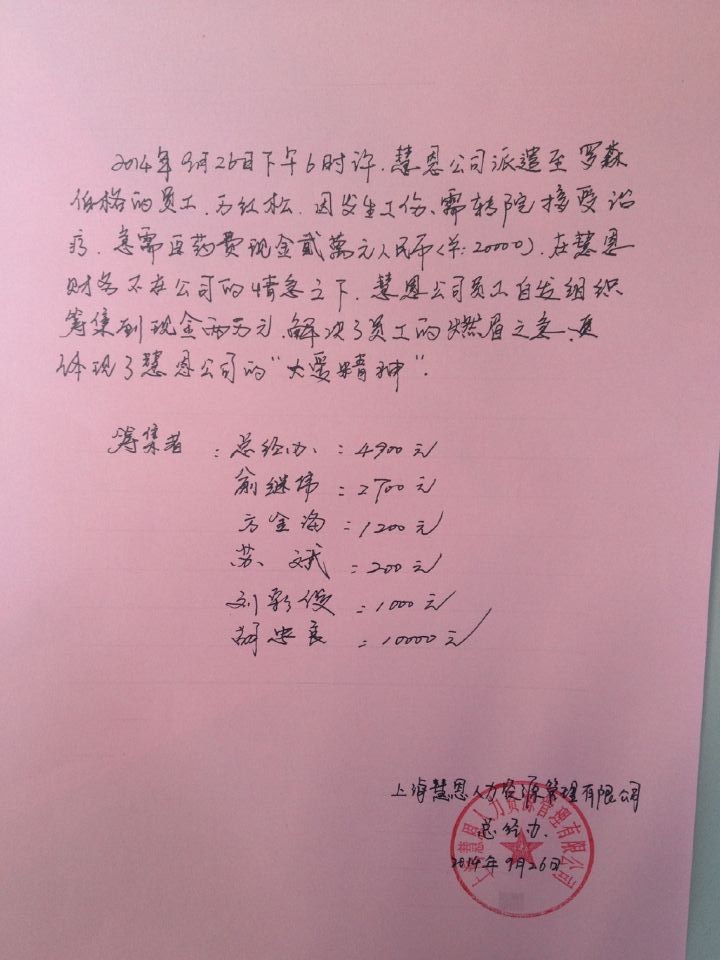 2014年9月26日下午6时许,慧恩公司派遣至罗森
伯格的员工,万红松,因发生工伤、需转院接受治
疗,急需医药费现金贰萬元人民币(¥:20000),在慧恩
财务不在公司的情急之下,慧恩公司员工自发组织
筹集到现金两万元,解决了员工的燃眉之急,更
体现了慧恩公司的“大爱精神”.
筹集者:总经办:4900元
俞继伟:2700元
方金海:1200元
苏斌:200元
刘彩俊:1000元
胡忠良:10000元
上海慧恩人力资源管理有限公司
总经办.
2014年9月26日
上海慧恩人力资源管理有限公司